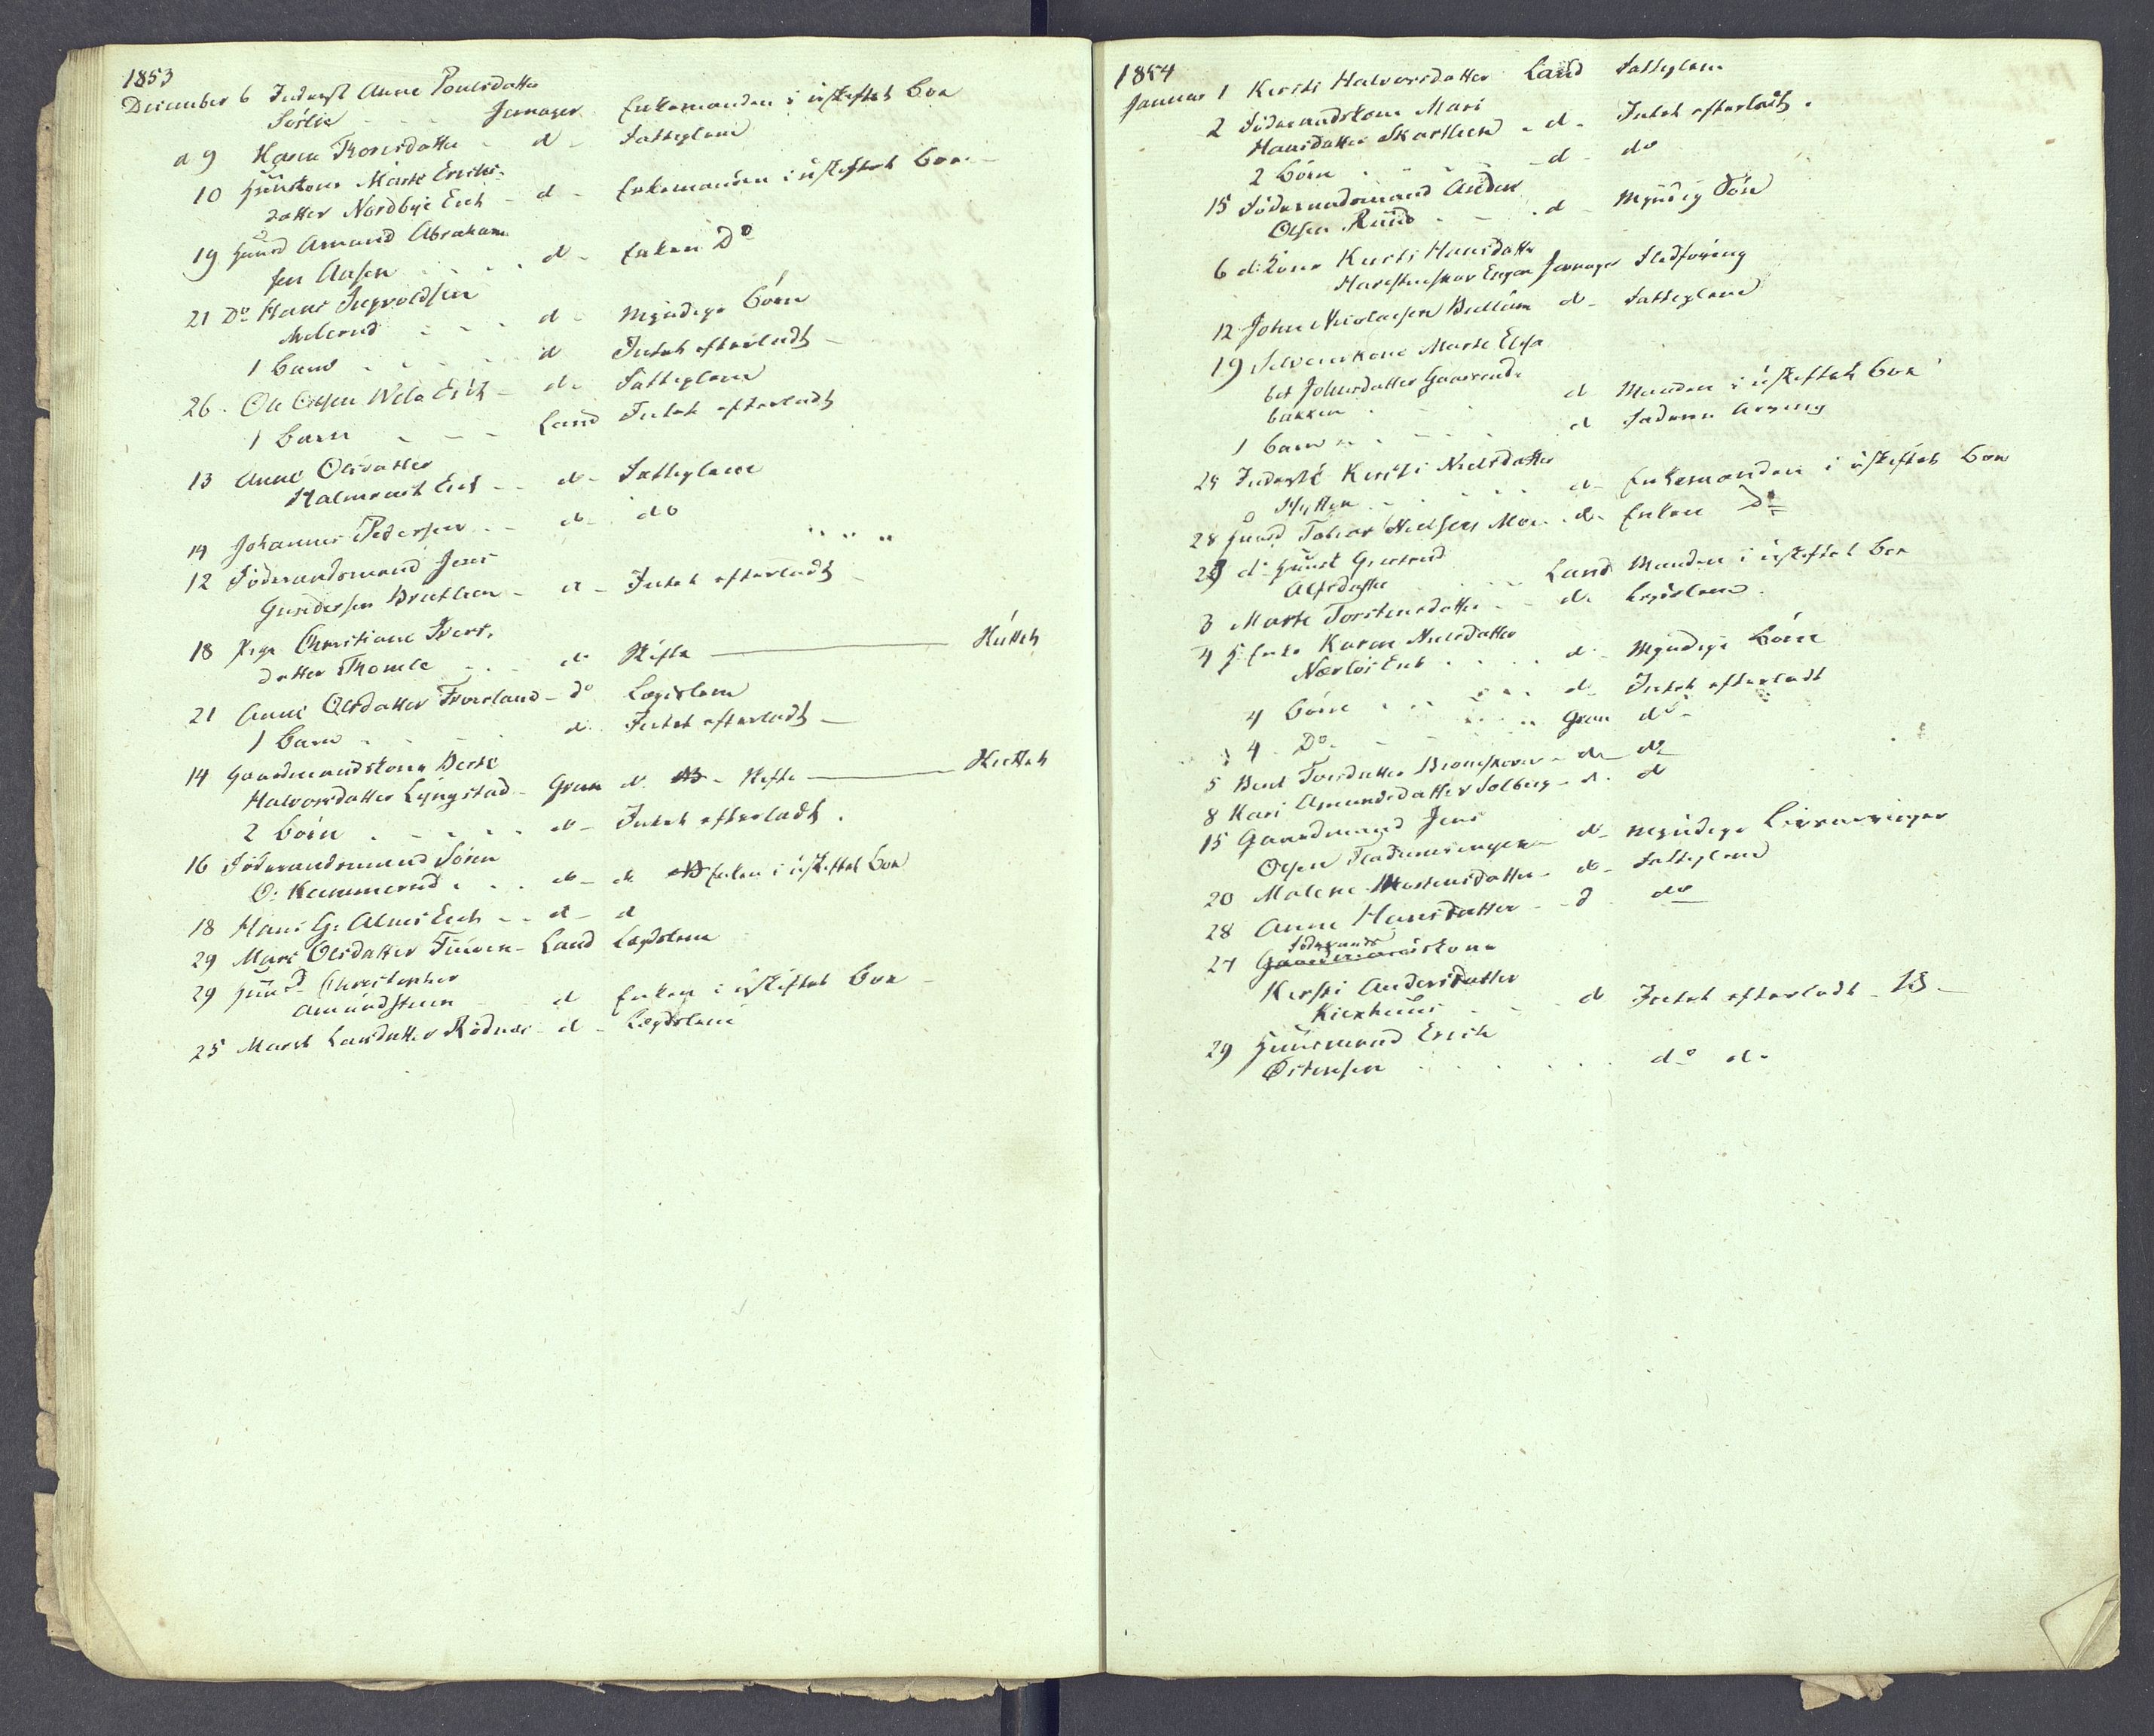 1853
December 6 Inderst Anne Poulsdatter
Sørlie - - - Jevnager Enkemanden i uskiftet Boe
d 9 Karen Thorsdatter - d - Fattiglem
10 Huuskone Marte Erichs-
datter Nordbye Eich - d - Enkemanden i uskiftet Boe -
19 Huusmd Amund Abraham
sen Aasen - - - d - Enken Do
21 Do Hans Ingvoldsen
- - - d - Myndige Børn
1 Barn - - - d Intet efterladt -
26. Ole Olsen Eich - d - Fattiglem
1 Barn - - - Land Intet efterladt
13 Anne Olsdatter
Eich - - d - Fattiglem
14 Johannes Pedersen - - d - do
12 Føderaadsmand Jens
Gundersen Bratlien - d - Intet efterladt -
18 Pige Christiane Ivers
datter Thomle - - d Skifte ——— Sluttet
21 Anne Olsdatter Tverland - do Lægdslem
1 Barn - - - d. Intet efterladt -
14 Gaardmandskone Berte
Halvorsdatter Lyngstad - Gran d. Skifte ——— Sluttet
2 Børn - - - d - Intet efterladt.
16 Føderaadsmand Søren
O. Kammerud . . . d - d Enken i uskiftet Boe
18 Hans G. Alm Eich - - d - d
29 Mari Olsdatter - Land Lægdslem
29 Huusmd Christopher
Amundsen - - d Enken i uskiftet Boe -
25 Marit Larsdatter Rødnæs - d - Lægdslem
1854
Januar 1 Kersti Halvorsdatter Land Fattiglem
2 Føderaadskone Mari
Hansdatter Skartlien - d - Intet efterladt.
2 Børn - - - d - do
15 Føderaadsmand Anders
Olsen Ruud - - . d - Myndig Søn
6 d: Kone Kersti Hansdatter
Engen Jevnager Stedforing
12 John Nicolaisen d - Fattiglem
19 Selveierkone Marte Elisa
bet Johnsdatter Gaarsrud
bakken - - - d Manden i uskiftet Boe
1 Barn - - - d Faderen Arving
25 Inderst Kersti Nielsdatter
Hytten - - - d - Enkemanden i uskiftet Boe
28 Huusmd Tobias Nielsen Moe . d - Enken Do
29 d - Huusk Gjertrud
Alfsdatter - - Land Manden i uskiftet Boe
3 Marte Torstensdatter - - d. Lægdslem.
4 G. Enke Karen Nielsdatter
Nærløs Eich . . . . d - Myndige Børn
4 Børn . . . . . d - Intet efterladt
4 Do. - - - Gran do -
5 Berit Iversdatter - d - do
8 Kari Amundsdatter Solberg - d. d
15 Gaardmand Jens
Olsen - d - Myndige Livsarvinger
20 Malene Mortensdatter - d - Fattiglem
28 Anne Hansdatter - - d do
27 Føderaads
Gaardmandskone
Kersti Andersdatter
Kiexhuus - - d Intet efterladt -
29 Huusmand Erich
Østensen . . . . . do d -